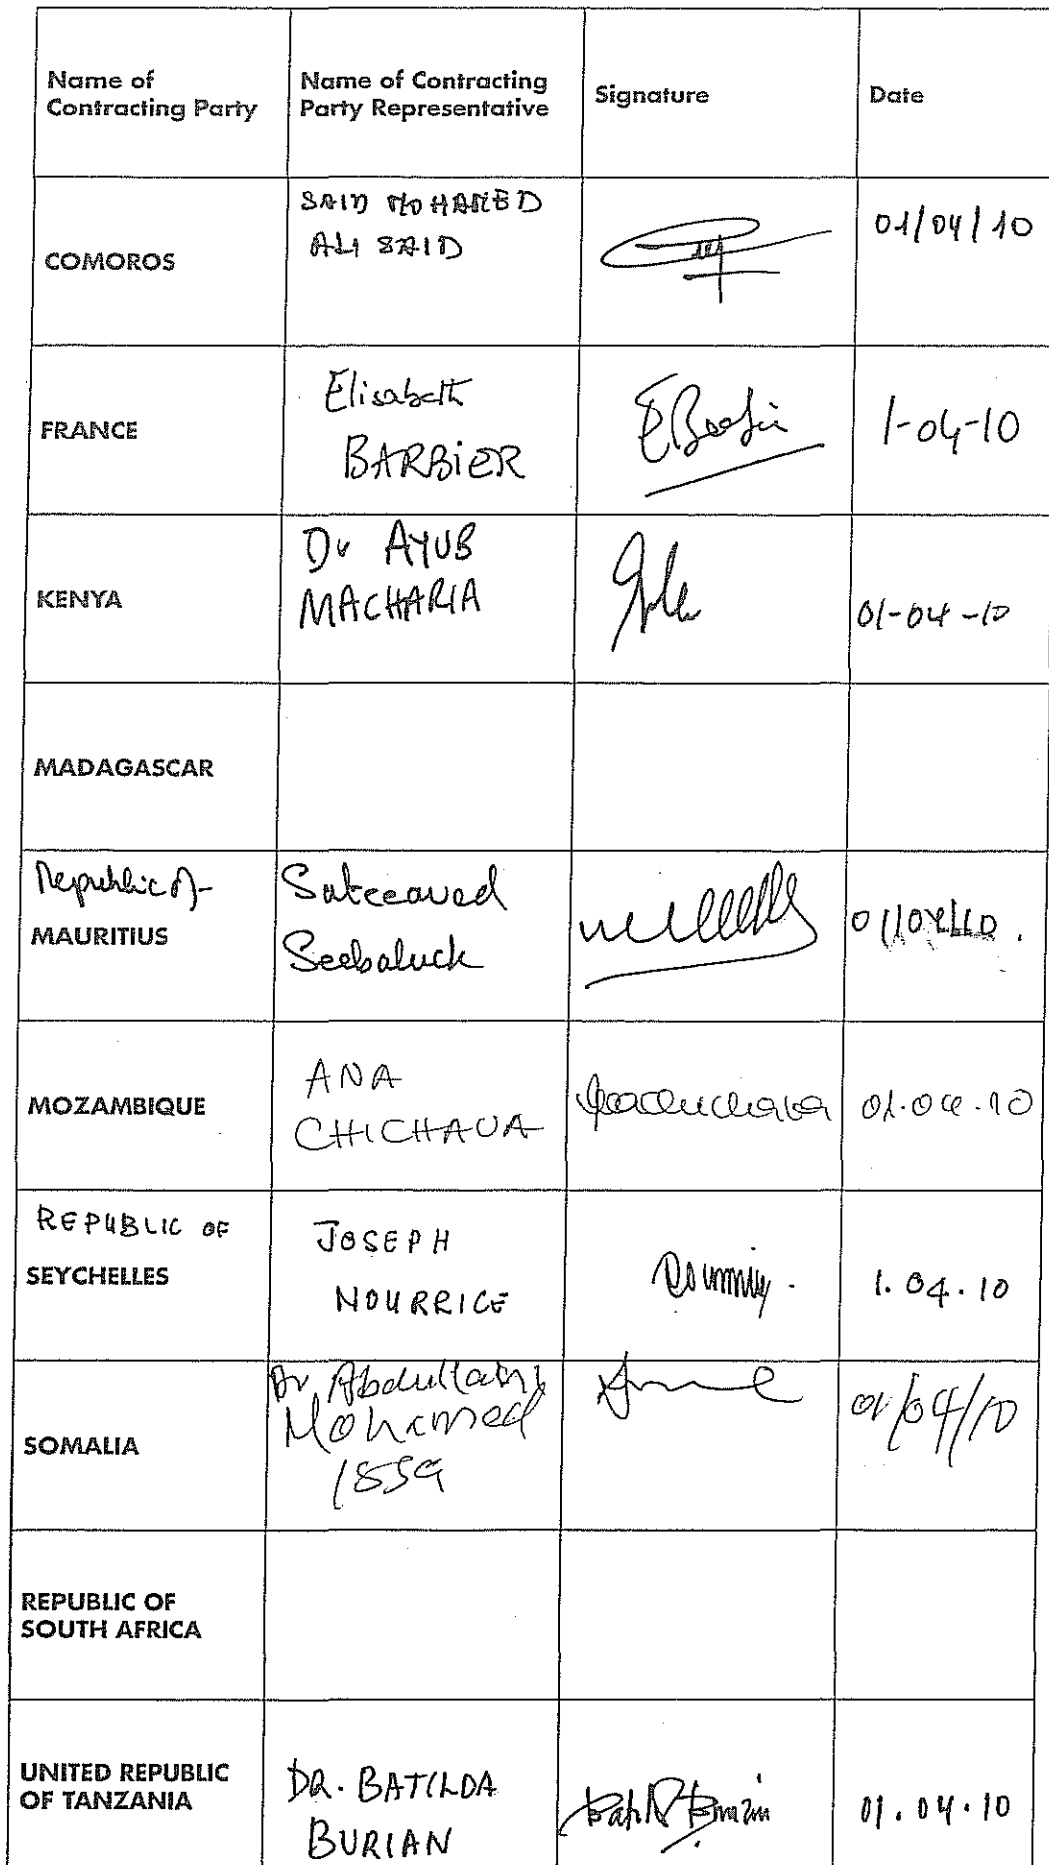 Name of
Contracting Party
Name of Contracting
Party Representative
Signature
Date
COMOROS
SAID MOHAMED
ALI SAID
01/04/10
FRANCE
Elisabeth
BARBIER
EBarbier
1-04-10
KENYA
Dr AYUB
MACHARIA
01-04-10
MADAGASCAR
Republic of
MAURITIUS
Sateeaved
Seebaluck
01/04/10.
MOZAMBIQUE
ANA
CHICHAVA
01.04.10
REPUBLIC OF
SEYCHELLES
JOSEPH
NOURRICE
1.04.10
SOMALIA
Dr Abdullahi
Mohamed
Issa
01/04/10
REPUBLIC OF
SOUTH AFRICA
UNITED REPUBLIC
OF TANZANIA
DR. BATILDA
BURIAN
01.04.10